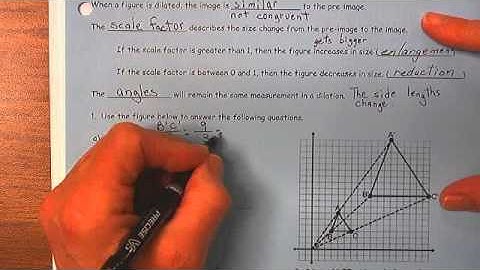 When a figure is dilated, the image is similar to the pre image.
not congruent
The scale factor describes the size change from the pre-image to the image.
gets bigger
If the scale factor is greater than 1, then the figure increases in size (enlargement)
If the scale factor is between 0 and 1, then the figure decreases in size. (reduction)
The angles will remain the same measurement in a dilation. The side lengths
change.
1. Use the figure below to answer the following questions.
B'C' 9
A'
B'
C'
A
B
C